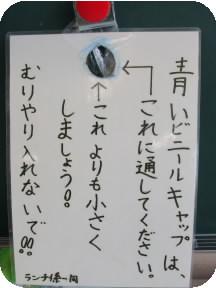 青いビニールキャップは、
これに通してください。
これよりも小さく
しましょう!!
むりやり入れないで!!
ランチ係一同